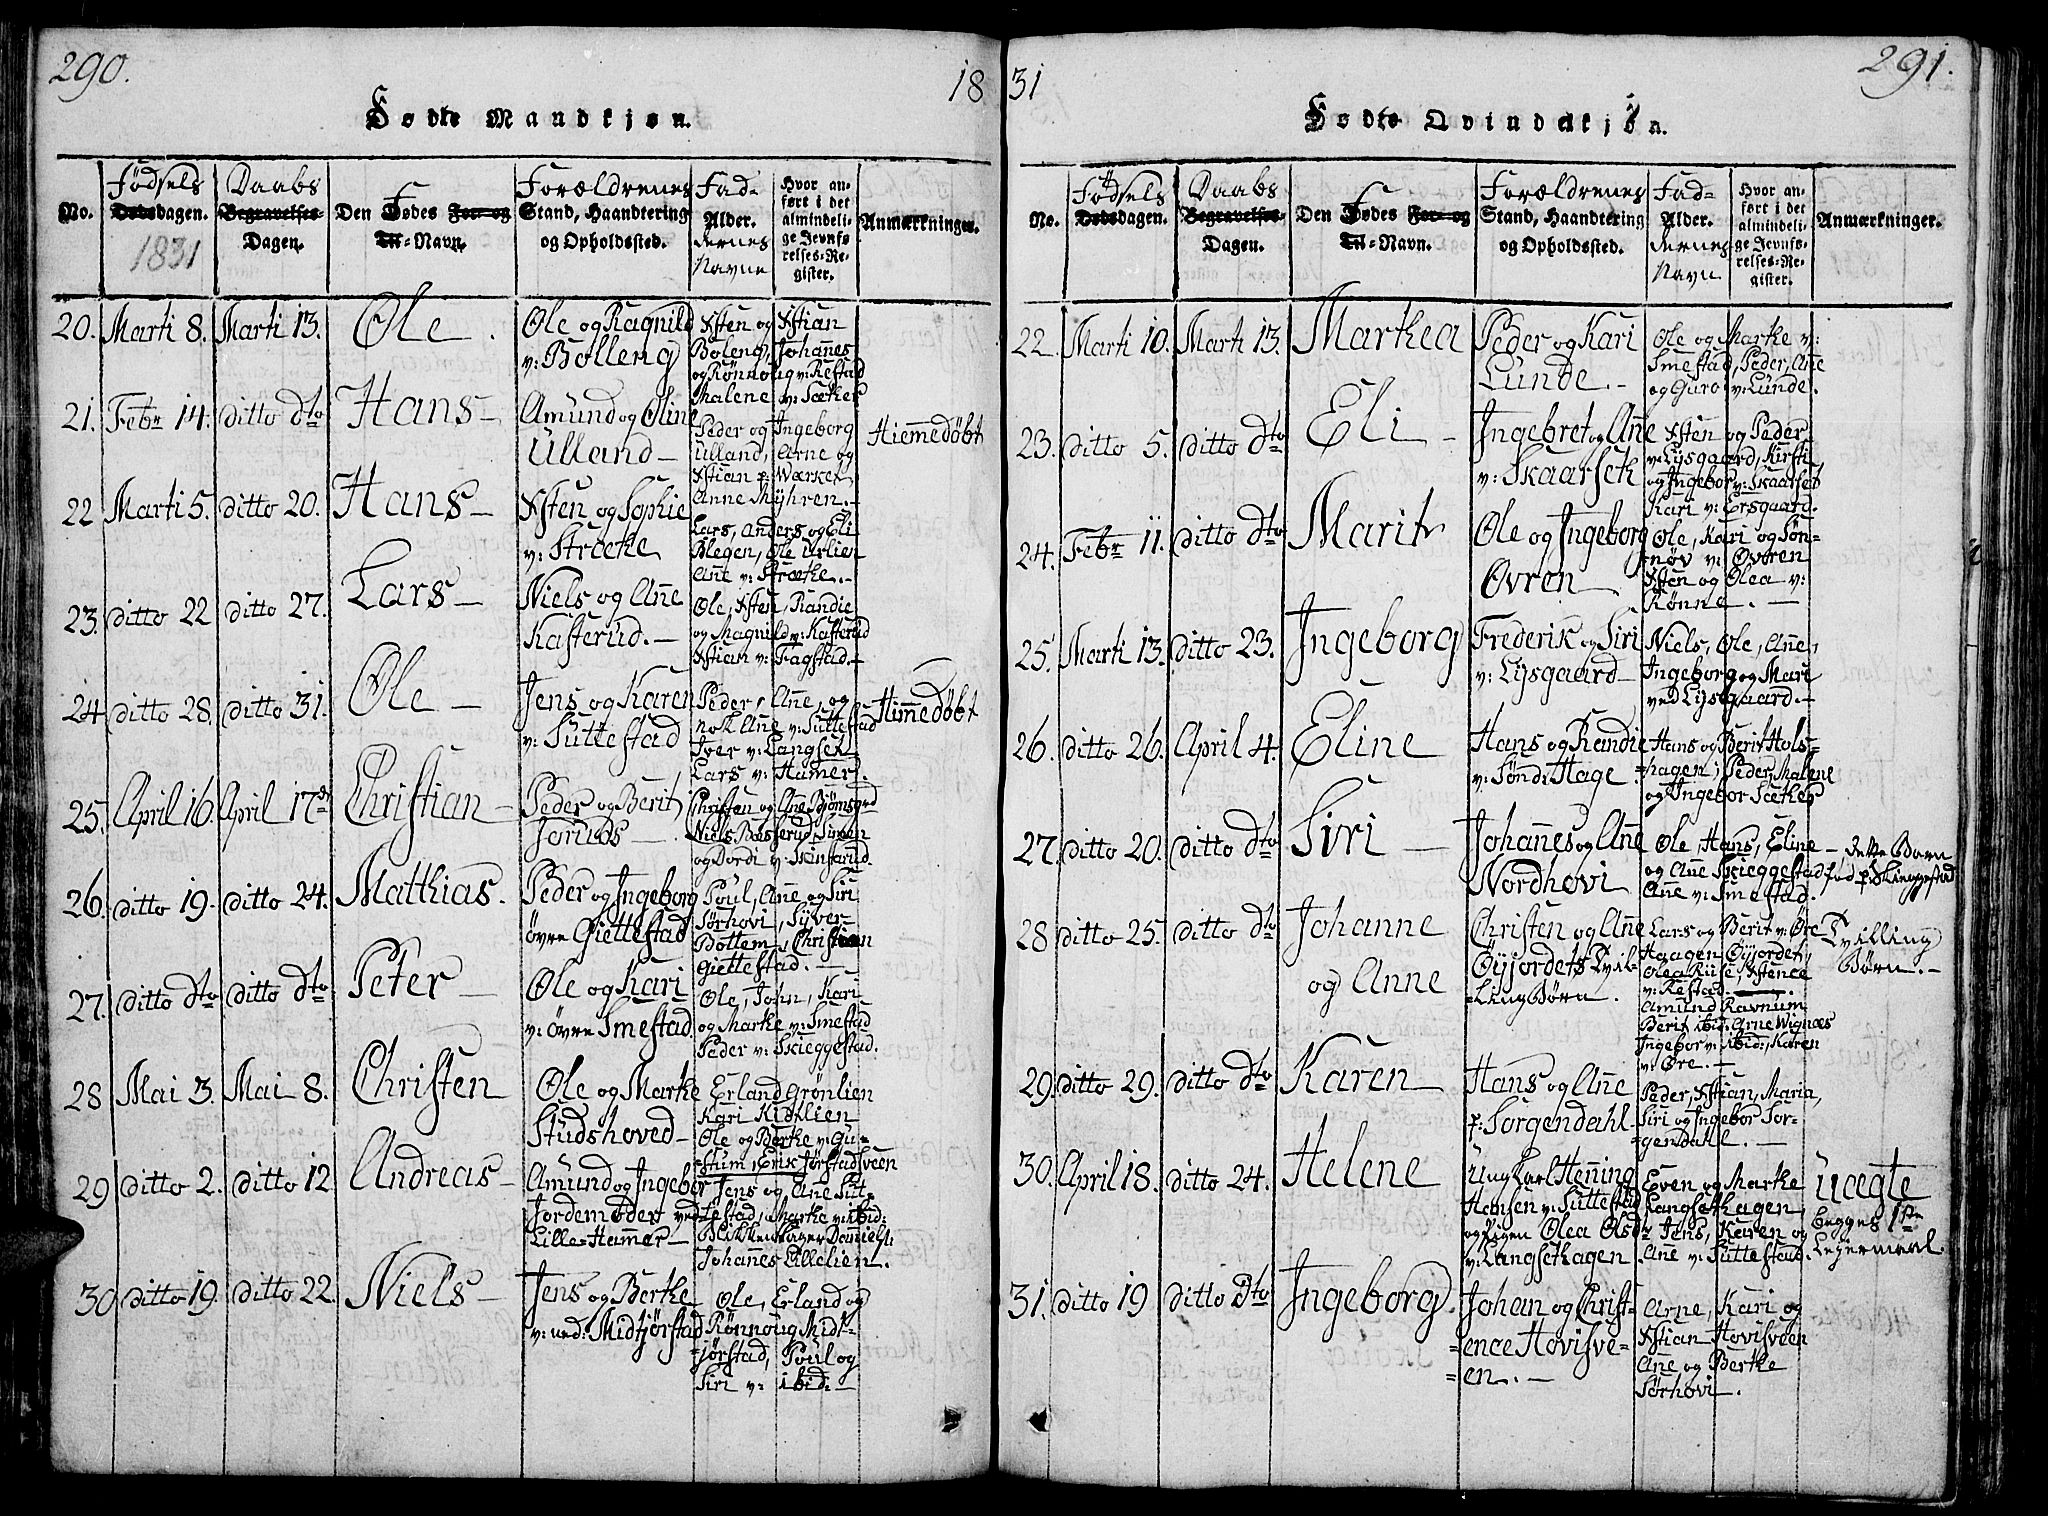 290.
18
Fødte Mandkjøn.
No.
Fødsels
Dødsdagen.
1831
Daabs
Begravelses-
Dagen.
Den Fødes For- og
Til-Navn.
Forældrenes
Stand, Haandtering
og Opholdssted.
Fad-
Alder.
dernes
Navne
Hvor an-
ført i det
almindeli-
ge Jevnfø-
relses-Re-
gister.
Anmærkninger.
20. Marti 8. Marti 13. Ole.
Ole og Ragnild
v: Bolleng
Xsten og Xstian
Boleng, Johannes
og Rønnoug v: Restad
Malene v: Sæther
21. Febr 14. ditto dto Hans
Amund og Oline
Ulland
Peder og Ingeborg
Ulland, Arne og
Xstian p: Wærket
Anne Myhren.
Hiemmedøbt
22 Marti 5. ditto 20. Hans
Xsten og Sophie
v: Stræte
Lars, Anders og Eli
Blegen, Ole Urlien
Ane v: Stræte.
23. ditto 22 ditto 27. Lars
Niels og Ane
Kasterud.
Ole, Xsten, Randie
og Magnild v: Kasterud
Xstian v: Fagstad.
24 ditto 28. ditto 31. Ole
Jens og Karen
v: Suttestad
Peder, Ane, og
nok Ane v: Suttestad
Iver v: Langset
Lars v: Hamer.
Himmedøbt
25. April 16. April 17de Christian
Peder og Berit
Joruds
Christen og Ane Bjømsgrd
Niels Bæsserud, Simen
og Dordi v: Skinsrud.
26. ditto 19. ditto 24. Matthias.
Peder og Ingeborg
øvre Giettestad
Poul, Ane og Siri
Sørhovi, Syver
Bottem, Christian
Giettestad.
27. ditto dto ditto dto Peter
Ole og Kari
v: øvre Smestad
Ole, John, Kari
og Marke v: Smestad
Peder v: Skieggestad.
28 Mai 3. Mai 8. Christen
Ole og Marke
Studshoved
Erland Grønlien
Kari Kidtlien
Ole og Berke v: Gu-
stum, Erik Jørstadsveen
29 ditto 2. ditto 12 Andreas
Amund og Ingebor
Jordemoder ved
Lille-Hamer
Jens og Ane Sut-
testad, Marke v: ibid:
Blikkenslager Daniels:
Johannes Lillelien.
30 ditto 19. ditto 22. Niels
Jens og Berke
v: ned: Midtjørstad
Ole, Erland og
Rønnoug Midt-
jørstad, Poul og
Siri v: ibid:
31
291.
Fødte Qvindekjøn.
No.
Fødsels
Dødsdagen.
Daabs
Begravelses-
Dagen.
Den Fødes For- og
Til-Navn.
Forældrenes
Stand, Haandtering
og Opholdssted.
Fad-
Alder.
dernes
Navn
Hvor an-
ført i det
almindeli-
ge Jevnfø-
relses-Re-
gister.
Anmærkninger.
22. Marti 10. Marti 13. Marthea
Peder og Kari
Lunde.
Ole og Marke v:
Smestad, Peder, Ane
og Guro v: Lunde.
23. ditto 5. ditto dto Eli
Ingebret og Ane
v: Skaarseth
Xsten og Peder
v: Lysgaard, Kirsti
og Ingebor v: Skaarset
Kari v: Ersgaard.
24. Febr 11. ditto dto Marit
Ole og Ingeborg
Øvren
Ole, Kari og Søn-
nøv v: Øveren
Xsten og Olea v:
Rønne.
25. Marti 13. ditto 23. Ingeborg
Frederik og Siri
v: Lysgaard
Niels, Ole, Ane,
Ingeborg og Mari
ved Lysegaard.
26. ditto 26. April 4. Eline
Hans og Randie
v: Sønd: Hage
Hans og Berit Hols-
hagen, Peder, Malene
og Ingebor Sæther
27. ditto 20. ditto dto Siri
Johanes og Ane
Nordhovi
Ole, Hans, Eline
og Ane Skieggestad
Ane v: Smestad.
dette Barn
fød p: Skieggestad
28 ditto 25. ditto dto Johanne
og Anne
Christen og Ane
Øyjordets Tvil-
ling Børn.
Lars og Berit v: Øre
Haagen Øyjordet,
Olea Riise, Xstence
v: Restad.
Amund Ravnum
Berit ibid: Arne Wignæs
Ingebor v: ibid:, Karen
v: Øre.
Tvilling
Børn.
29. ditto 29. ditto dto Karen
Hans og Ane
p: Sorgendahl
Peder, Xstian, Maria,
Siri og Ingebor Sor-
gendahl.
30. April 18. ditto 24. Helene
Ung Carl Hening
Hansen v: Suttestad
og Pigen Olea Olsdr
v: Langsethagen
Even og Marke
Langsethagen,
Jens, Karen og
Ane v: Suttestad.
Uægte
begges 1ste
Lejermaal.
31. ditto 19 ditto dto Ingeborg
Johan og Christ-
ence Hovisve-
en.
Arne, Kari og
Xstian Hovisveen
Ane og Berke
Sørhovi.